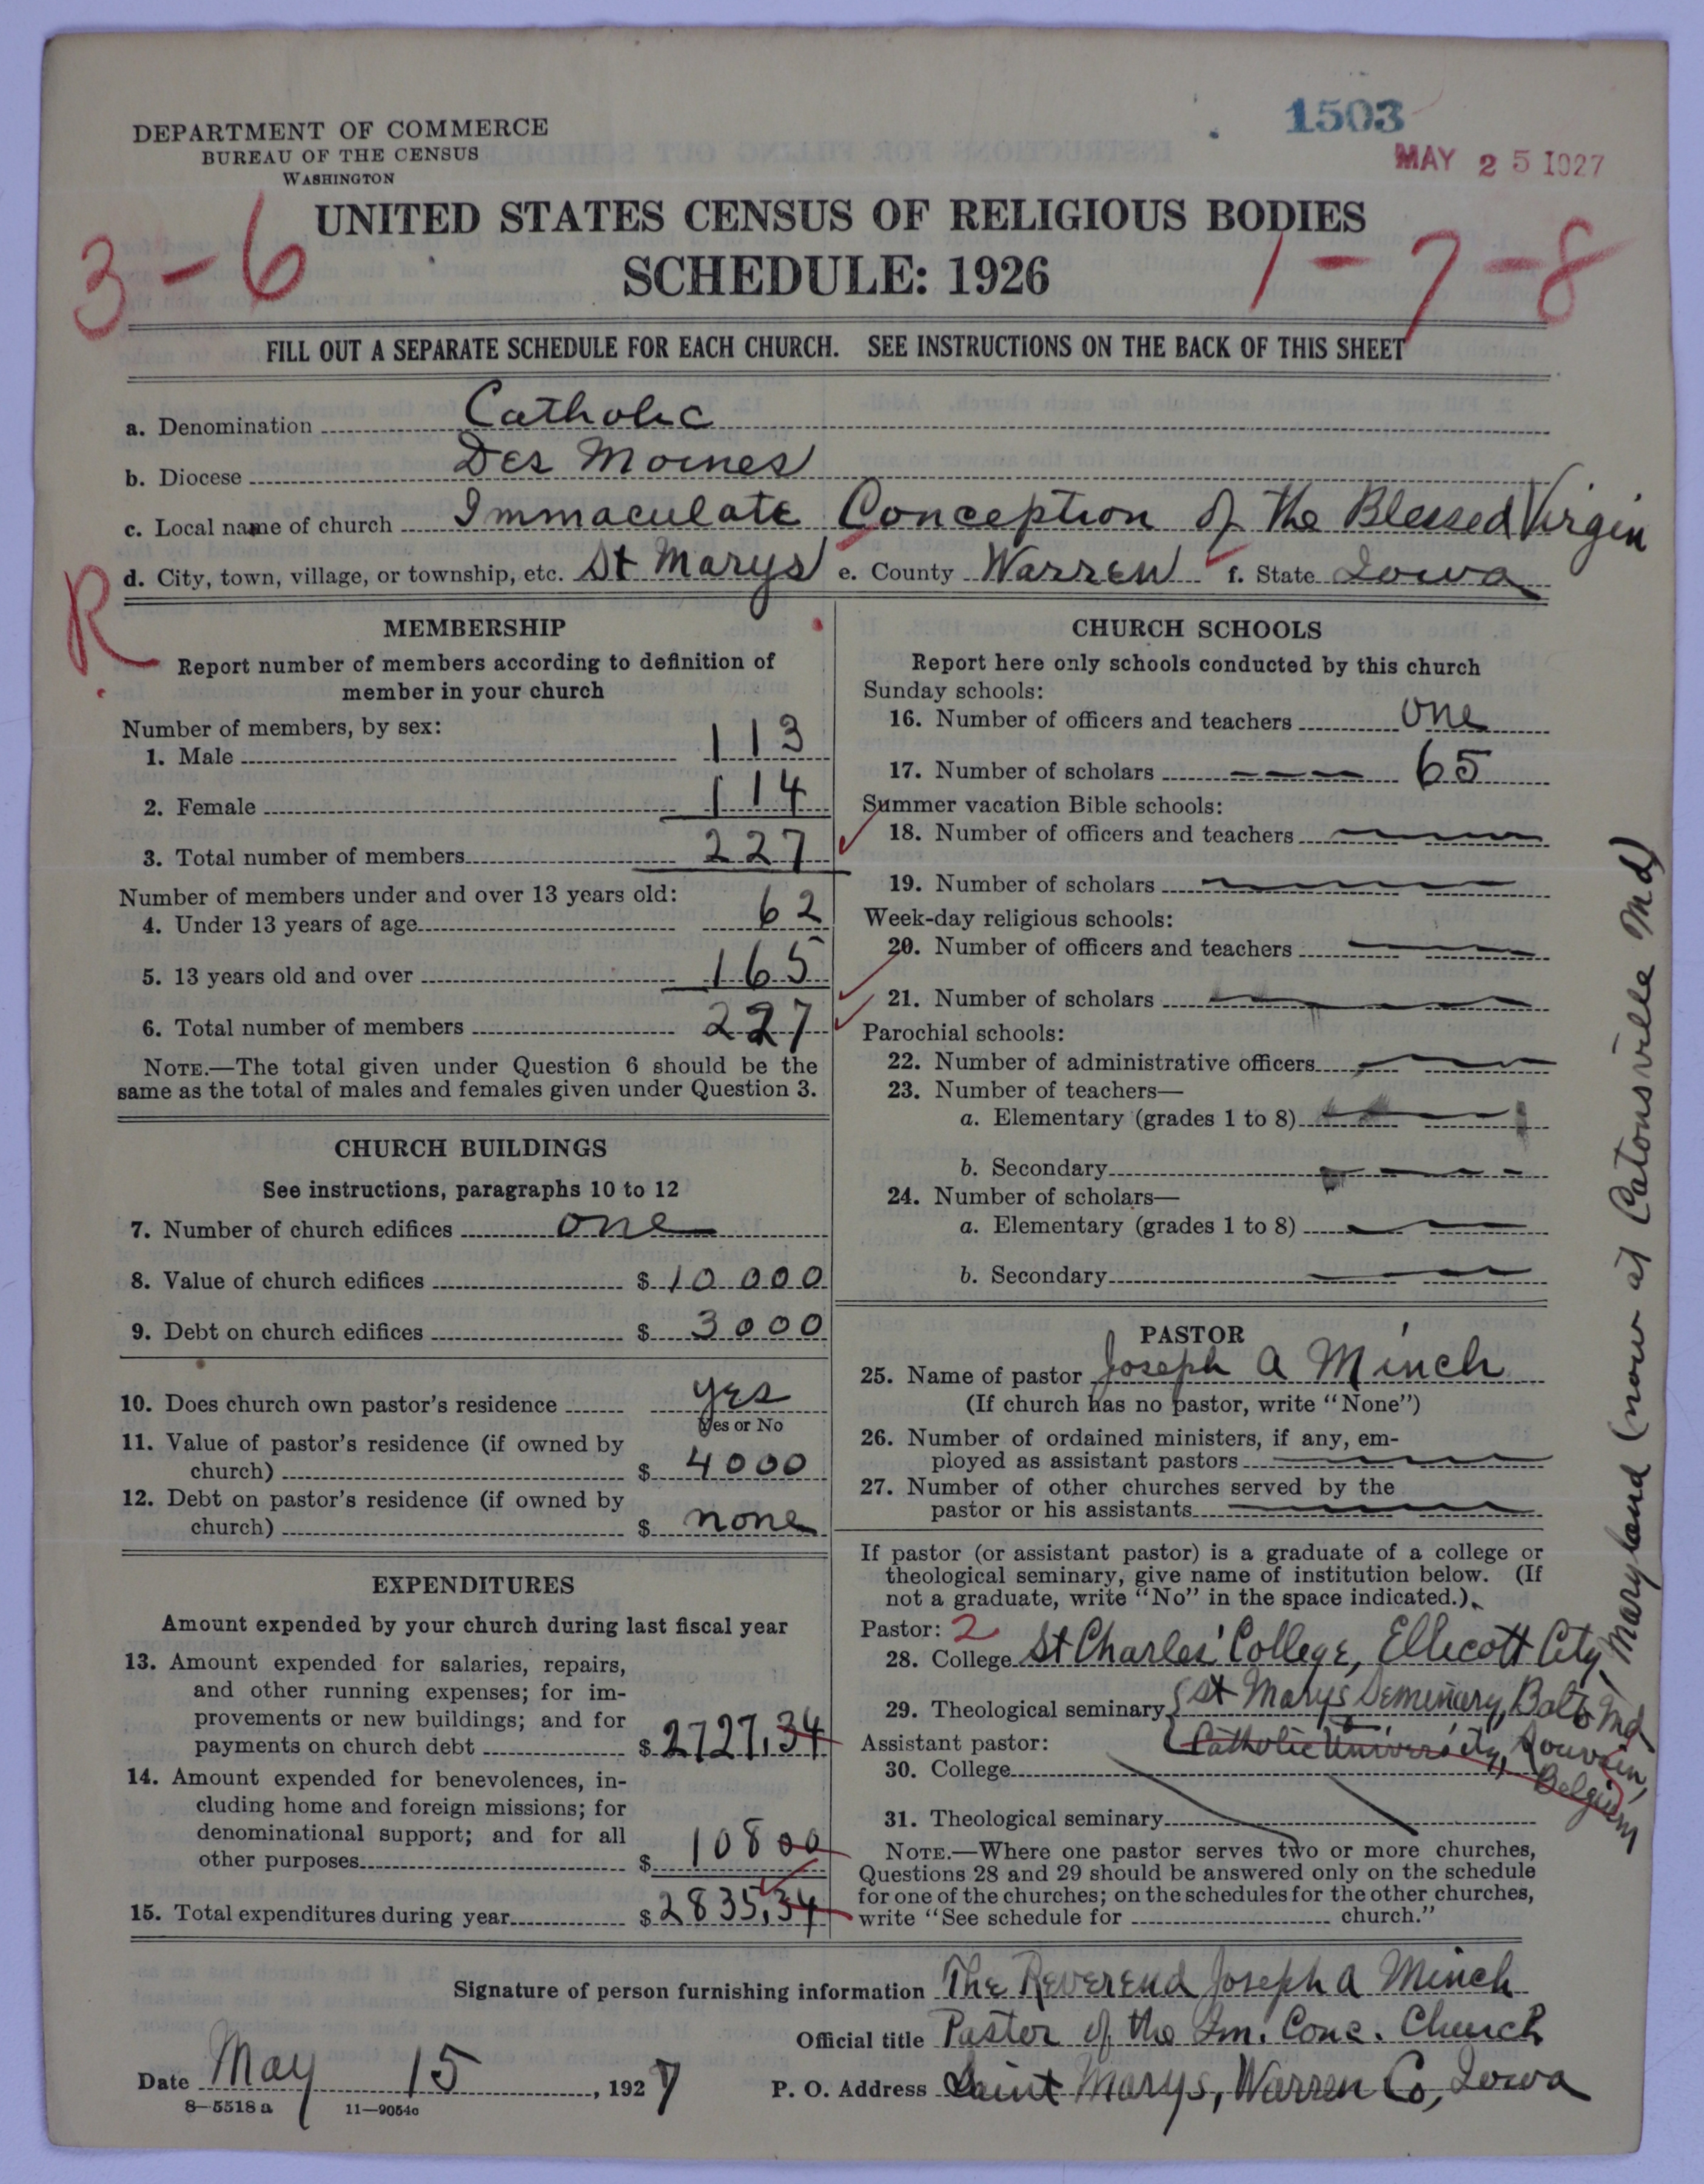 1503
MAY 25 1927
DEPARTMENT OF COMMERCE
BUREAU OF THE CENSUS
WASHINGTON
3-6
UNITED STATES CENSUS OF RELIGIOUS BODIES
SCHEDULE: 1926
1-7-8
FILL OUT A SEPARATE SCHEDULE FOR EACH CHURCH. SEE INSTRUCTIONS ON THE BACK OF THIS SHEET
a. Denomination Catholic
b. Diocese Des Moines
c. Local name of church Immaculate Conception of the Blessed Virgin
d. City, town, village, or township, etc. St Marys e. County Warren f. State Iowa
R
MEMBERSHIP
Report number of members according to definition of
member in your church
Number of members, by sex:
1. Male 113
2. Female 114
3. Total number of members 227
Number of members under and over 13 years old:
4. Under 13 years of age 62
5. 13 years old and over 165
6. Total number of members 227
NOTE.—The total given under Question 6 should be the
same as the total of males and females given under Question 3.
CHURCH BUILDINGS
See instructions, paragraphs 10 to 12
7. Number of church edifices one
8. Value of church edifices $ 10 000
9. Debt on church edifices $ 3000
10. Does church own pastor's residence yes
Yes or No
11. Value of pastor's residence (if owned by
church) $ 4000
12. Debt on pastor's residence (if owned by
church) $ none
EXPENDITURES
Amount expended by your church during last fiscal year
13. Amount expended for salaries, repairs,
and other running expenses; for im-
provements or new buildings; and for
payments on church debt $ 2727.34
14. Amount expended for benevolences, in-
cluding home and foreign missions; for
denominational support; and for all
other purposes $ 108 00
15. Total expenditures during year $ 2835.34
CHURCH SCHOOLS
Report here only schools conducted by this church
Sunday schools:
16. Number of officers and teachers one
17. Number of scholars 65
Summer vacation Bible schools:
18. Number of officers and teachers
19. Number of scholars
Week-day religious schools:
20. Number of officers and teachers
21. Number of scholars
Parochial schools:
22. Number of administrative officers
23. Number of teachers—
a. Elementary (grades 1 to 8)
b. Secondary
24. Number of scholars—
a. Elementary (grades 1 to 8)
b. Secondary
PASTOR
25. Name of pastor Joseph A Minch
(If church has no pastor, write "None")
26. Number of ordained ministers, if any, em-
ployed as assistant pastors
27. Number of other churches served by the
pastor or his assistants
If pastor (or assistant pastor) is a graduate of a college or
theological seminary, give name of institution below. (If
not a graduate, write "No" in the space indicated.)
Pastor: 2
28. College St Charles' College, Ellicott City, Maryland (now at Catonsville Md)
29. Theological seminary St Marys Seminary, Balto Md
Assistant pastor: Catholic University, Louvain, Belgium
30. College
31. Theological seminary
NOTE.—Where one pastor serves two or more churches,
Questions 28 and 29 should be answered only on the schedule
for one of the churches; on the schedules for the other churches,
write "See schedule for church."
Signature of person furnishing information The Reverend Joseph A Minch
Official title Pastor of the Im. Conc. Church
Date May 15, 1927 P. O. Address Saint Marys, Warren Co, Iowa
8-5518a 11-9054c